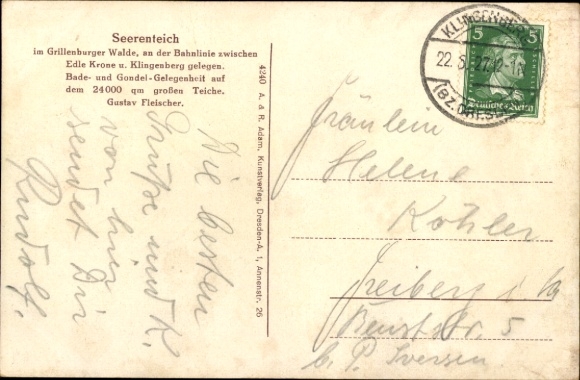 Seerenteich
im Grillenburger Walde, an der Bahnlinie zwischen
Edle Krone u. Klingenberg gelegen.
Bade- und Gondel-Gelegenheit auf
dem 24000 qm großen Teiche.
Gustav Fleischer.
Die besten
Grüße und K.
von hier
sendet Dir
Rudolf.
4240 A. & R. Adam, Kunstverlag, Dresden-A. 1, Annenstr. 26
KLINGENBERG
22.5.27.12-1
(BZ. DRESD
5 5
Deutsches Reich
Fräulein
Helene
Köhler
Freiberg i. Sa
str. 5
b. P. Iversen